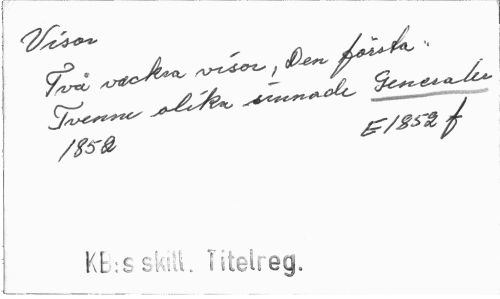 Visor
Två vackra visor, Den första:
Tvenne olika sinnade Generaler
1852
E1852 f
KB:s skill. Titelreg.